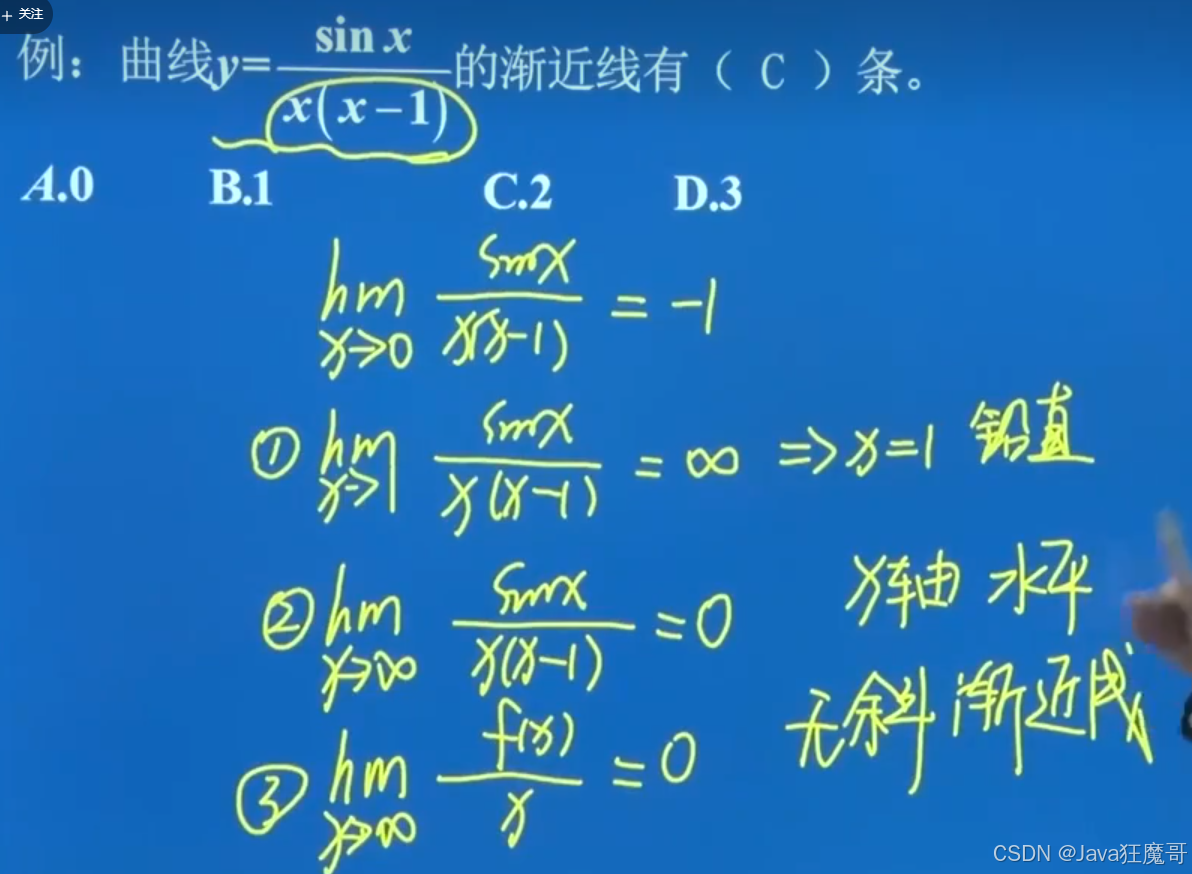 + 关注
例：曲线y=sin x/x(x-1)的渐近线有（ C ）条。
A.0 B.1 C.2 D.3
lim x→0 sinx/x(x-1) = -1
① lim x→1 sinx/x(x-1) = ∞ ⇒ x=1 铅直
② lim x→∞ sinx/x(x-1) = 0 x轴 水平
③ lim x→∞ f(x)/x = 0 无斜渐近线
CSDN @Java狂魔哥